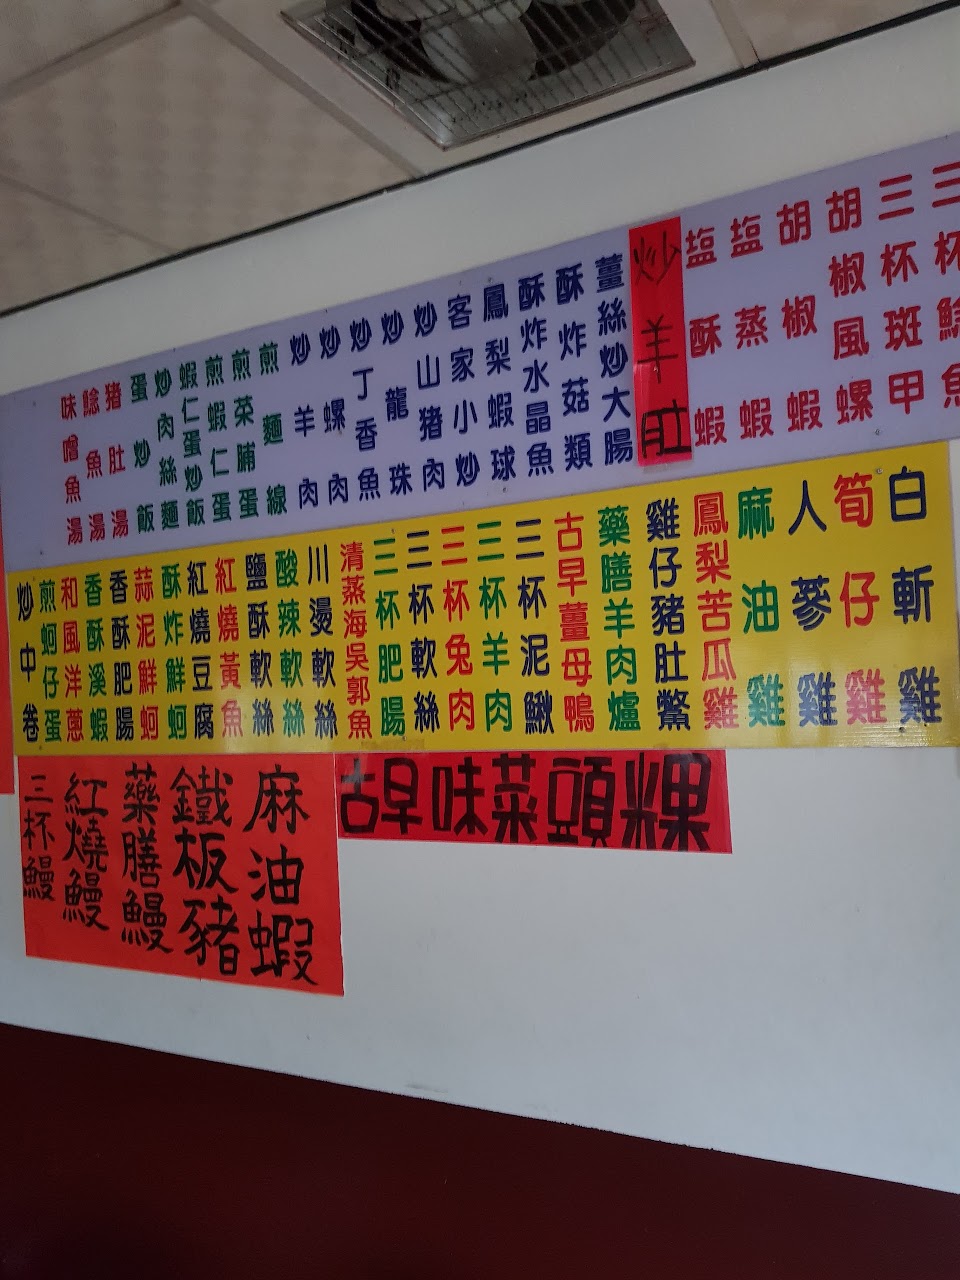 三杯鯰魚
三杯斑甲
胡椒風螺
胡椒蝦
塩蒸蝦
塩酥蝦
炒羊肚
薑絲炒大腸
酥炸菇類
酥炸水晶魚
鳳梨蝦球
客家小炒
炒山豬肉
炒龍珠
炒丁香魚
炒螺肉
炒羊肉
煎麵線
煎菜脯蛋
煎蝦仁蛋
蝦仁蛋炒飯
炒肉絲麵
蛋炒飯
豬肚湯
鯰魚湯
味噌魚湯
白斬雞
筍仔雞
人蔘雞
麻油雞
鳳梨苦瓜雞
雞仔豬肚鱉
藥膳羊肉爐
古早薑母鴨
三杯泥鰍
三杯羊肉
三杯兔肉
三杯軟絲
三杯肥腸
清蒸海吳郭魚
川燙軟絲
酸辣軟絲
鹽酥軟絲
紅燒黃魚
紅燒豆腐
酥炸鮮蚵
蒜泥鮮蚵
香酥肥腸
香酥溪蝦
和風洋蔥
煎蚵仔蛋
炒中卷
古早味菜頭粿
麻油蝦
鐵板豬
藥膳鰻
紅燒鰻
三杯鰻